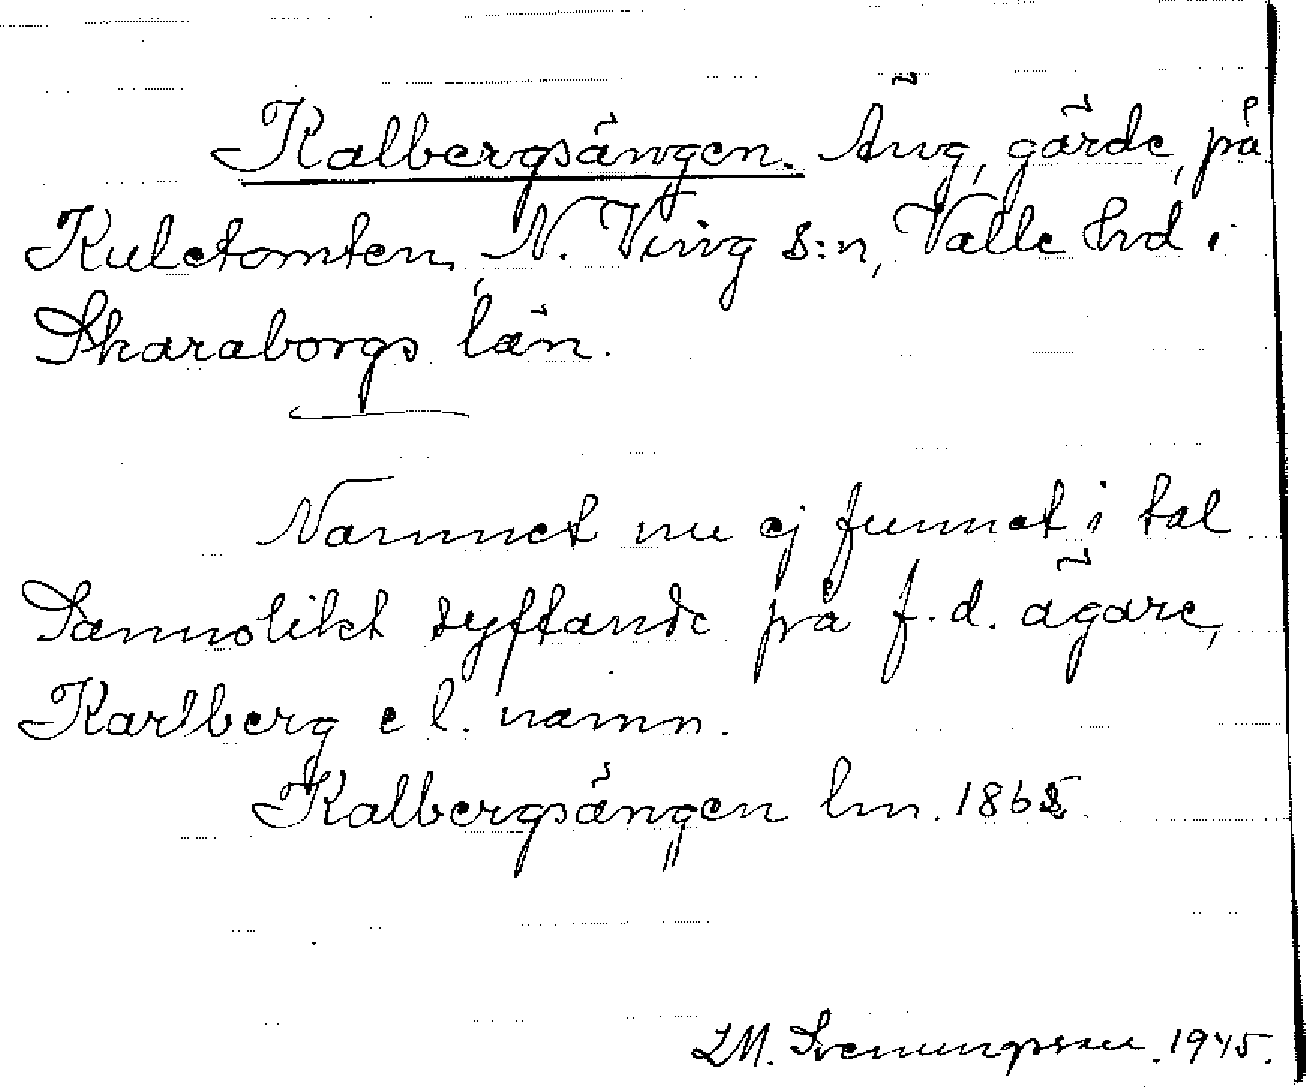 Kalbergsängen. Äng, gärde, på
Kuletomten, N. Ving s:n, Valle hd i
Skaraborgs län.
Namnet nu ej funnet i tal
Sannolikt syftande på f.d. ägare,
Karlberg el. namn.
Kalbergsängen lm. 1865
LM. Svenungsson. 1945.